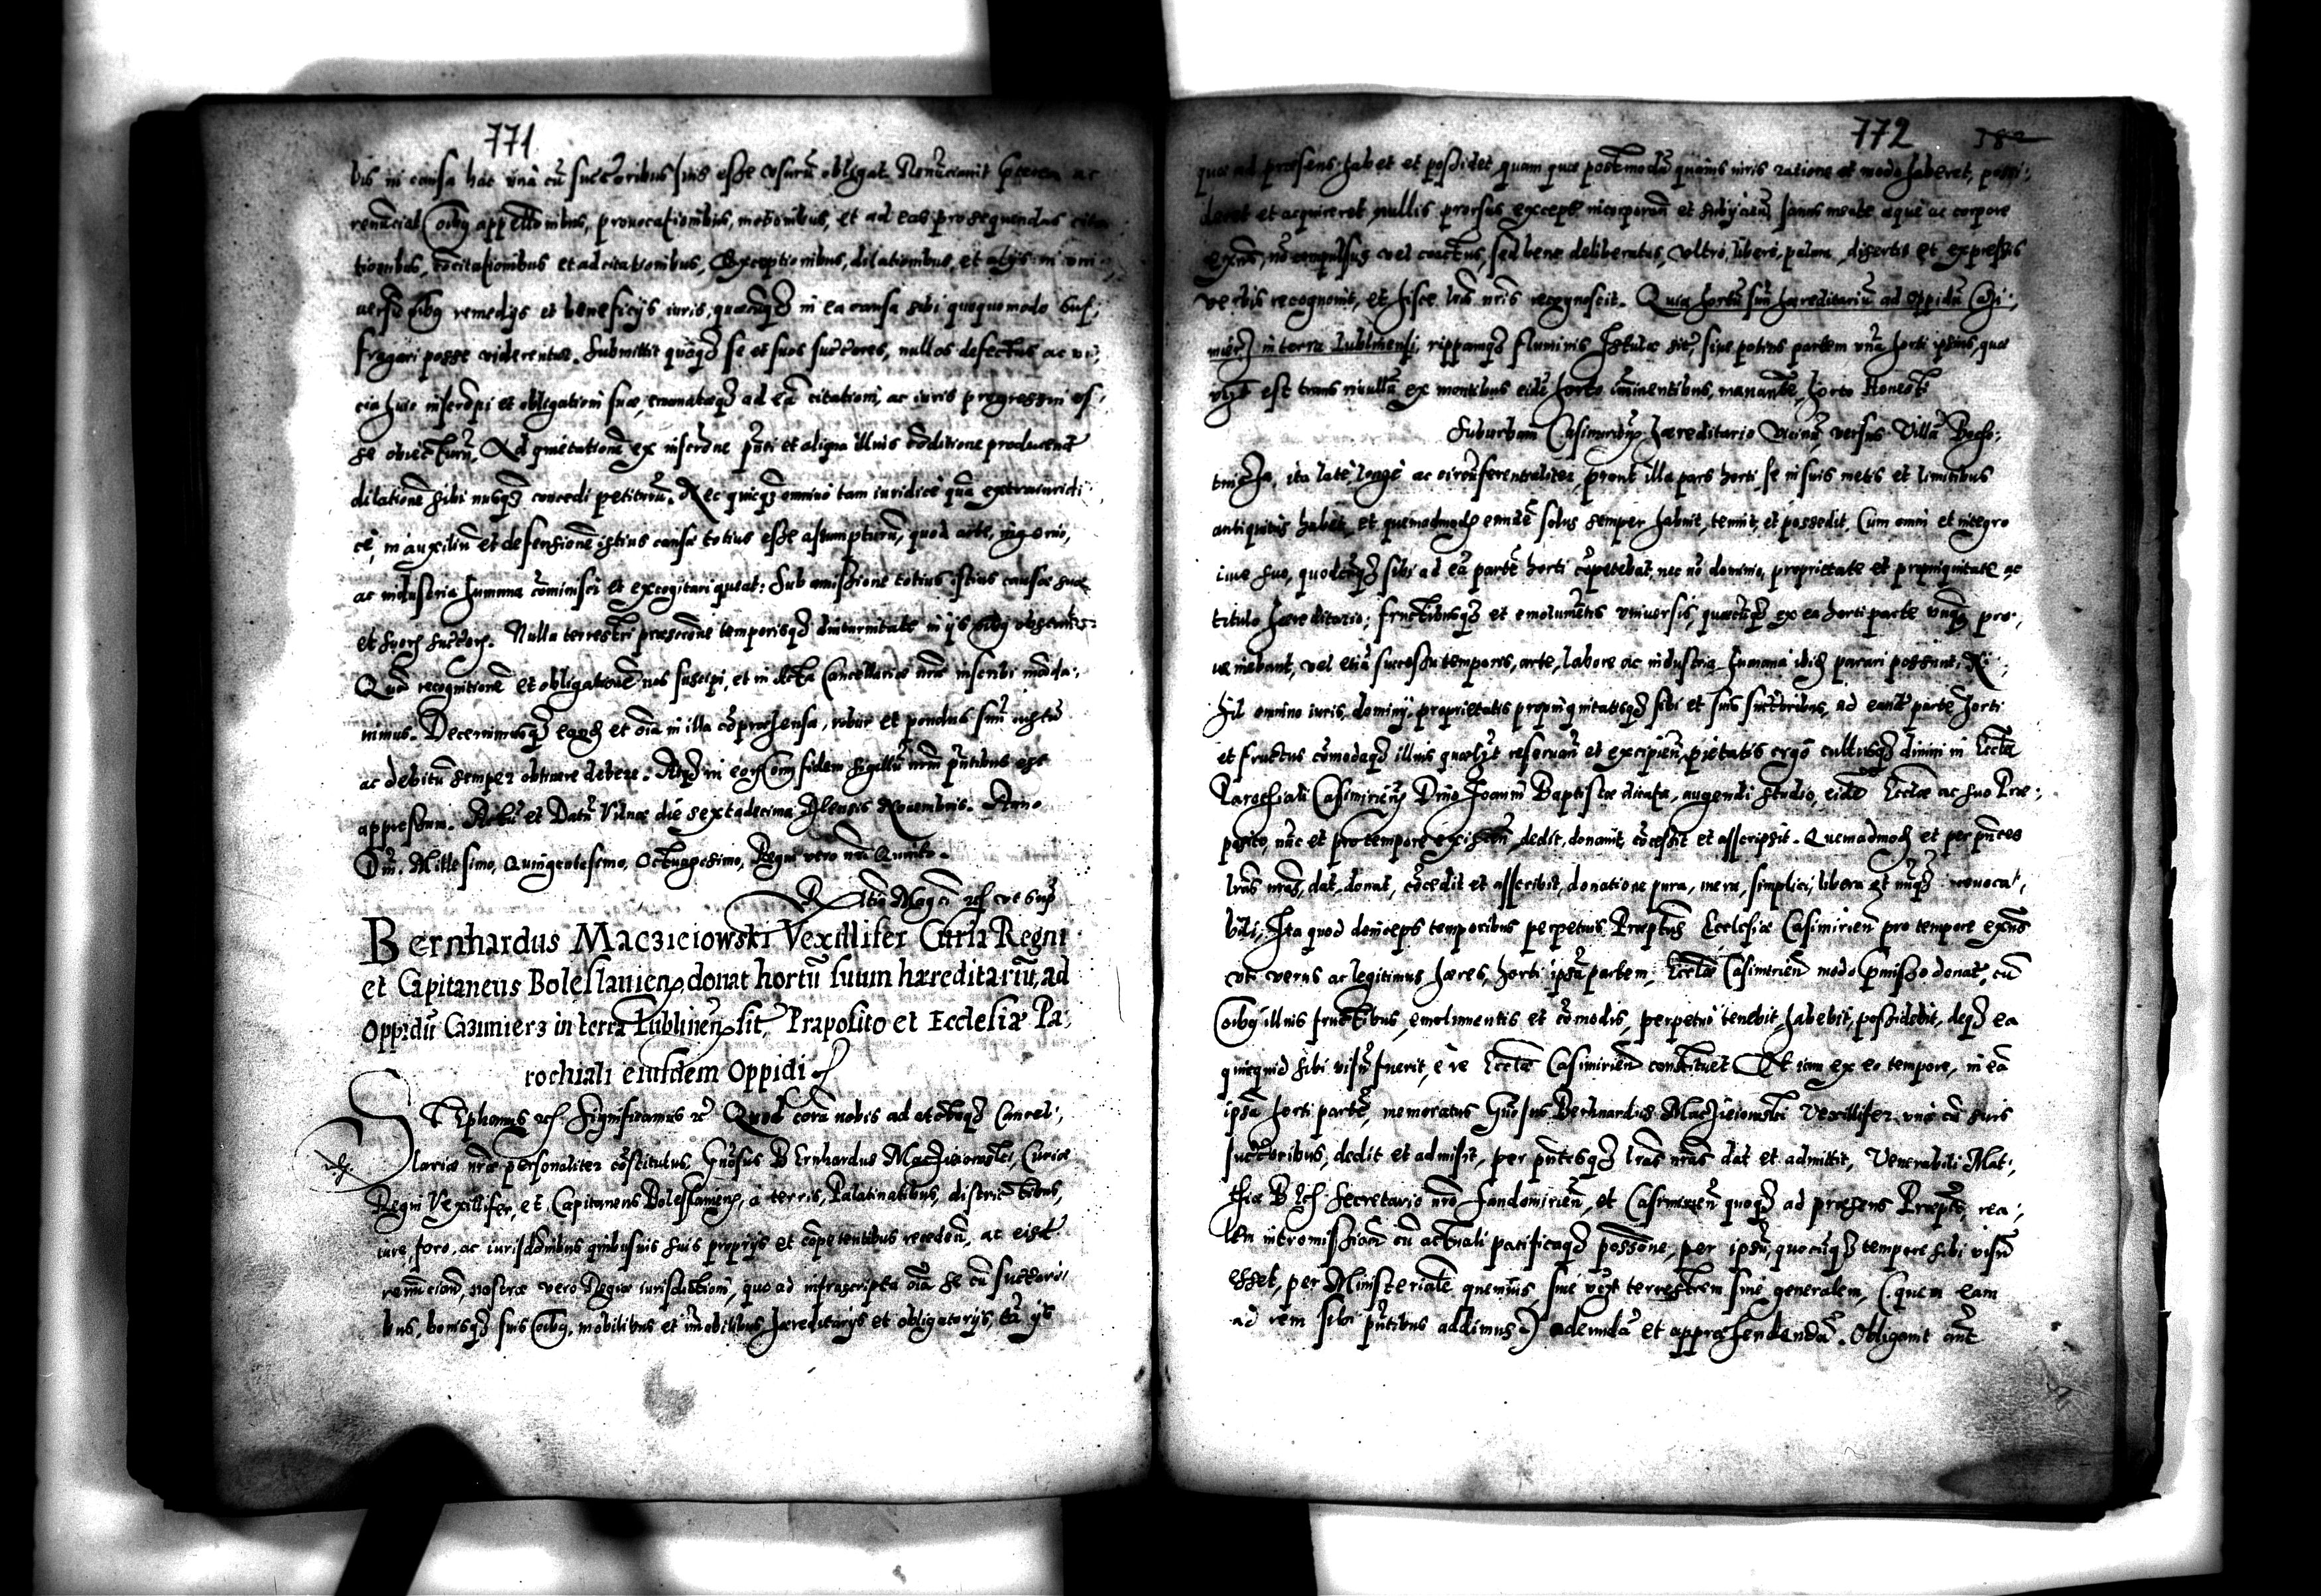 771
bis in causa hac unà cũ successoribus suis esse usurũ obligat. Renũciavit ac
renũciat õibg appellõnibus, provocationibus, motionibus, et ad eas prosequendas cita
tionibus, cõcitationibus et adcitationibus, Exceptionibus, dilationibus, et alijs in uni
versũ õibg remedijs et beneficijs iuris, quæcũqʒ in ea causa sibi quoquomodo suf:
fragari posse viderentur. Submittit quõqʒ se et suos succores, nullos defectus ac vi:
cia huic inscrõni et obligationi suæ, emanatæqʒ ad eã citationi, ac iuris progressui es:
se obiecturũ. Ad quietationẽ ex inscrõne pñti et aliqua illius cõditione producend
dilationẽ sibi nusqʒ concedi petiturũ. Nec quicqʒ omnino tam iuridicè quã extraiuridi:
cè, in auxiliũ et defensionẽ istius causæ totius esse assumpturũ, quod arte, ingenio,
ac industria humana cõminisci et excogitari queat: Sub amissione totius istius causæ suæ
et suor succor. Nulla terrestri præscrõne temporisqʒ diuturnitate in ijs õibg obstante.
Quã recognitionẽ et obligationẽ nos suscepi, et in Acta Cancellariæ nræ inscribi mãda:
vimus. Decernimusqʒ eandẽ et õia in illa cõprehensa, robur et pondus suũ iustũ
ac debitũ semper obtinere debere. In fidem sigillũ nrm pñtibus est
appressum. Actũ et Datũ Vilnæ die sextadecima Mensis Novembris. Anno
Dñi. Millesimo, Quingentesimo, Octuagesimo, Regni vero nri Quinto.
R itio Magci ut sup
Bernhardus Macziciowski Vexillifer Curiæ Regni
et Capitaneus Boleslavien donat hortũ suum hæreditariũ, ad
Oppidũ Cazimierz in terra Lublinen sit. Præposito et Ecclesiæ Pa:
rochiali eiusdem Oppidi
Stephanus Significamus Quod corã nobis ad actaqʒ Cancel:
lariæ nræ personaliter cõstitutus, Gñosus Bernhardus Macziciowski, Curiæ
Regni Vexillifer, et Capitaneus Boleslavien, à terris, Palatinatibus, districtibus,
iure, foro, ac iurisdõnibus quibusvis suis proprijs et cõpetentibus recedeñ, ac eisd
renũcianð, nostræ vero Regiæ iurisdictioni, quo ad infrascripta õia se cũ succori
bus, bonisqʒ suis õibg, mobilibus et imobilibus hæreditarijs et obligatorijs, tã ijs
772 382
quæ ad præsens habet et possidet, quam quæ postmodũ quovis iuris ratione et modo haberet, possi:
deret et acquireret, nullis prorsus except. incorporan et subijcien, sanus mente æquè ac corpore
exñs, nõ compulsus vel coactus, sed bene deliberatus, ultro, liberè, palam, disertis et expressis
verbis recognovit, et hisce lris nris recognoscit. Quia hortũ suũ hæreditariũ ad Oppidũ Cazi:
mierz in terra Lublinensi, rippamqʒ fluminis Istulæ sit, sive potius partem unã horti ipsius, quæ
est trans rivullũ ex montibus eidẽ horto ĩminentibus, manantẽ, horto Honesti
Suburbani Casimirien hæreditario vicinã versus Villã Bocho:
tnicza, ita latè longè ac circũferentialiter, prout illa pars horti se in suis metis et limitibus
antiquitus habet, et quemadmodũ eandẽ solus semper habuit, tenuit, et possedit, Cum omni et integro
iure suo, quodcũqʒ sibi ad eã partẽ horti cõpetebat, nec nõ dominio, proprietate et propinquitate ac
titulo hæreditario; fructibusqʒ et emolumẽtis universis, quæcũqʒ ex ea horti parte unqʒ pro:
veniebant, vel etiã successu temporis, arte, labore ac industria humana ibidẽ parari possunt, Ni:
hil omnino iuris, dominij, proprietatis propinquitatisqʒ sibi et suis succoribus, ad eandẽ partẽ horti
et fructus cõmodaqʒ illius quælibet reservan et excipien, pietatis ergò cultusqʒ divini in Eccla
Parochiali Casimirien Divo Joanni Baptistæ dicata, augendi studio, eidẽ Ecclæ ac suo Præ:
posito, nũc et pro tempore existeñ, dedit, donavit, cõcessit et asscripsit. Quemadmodũ et per pñtes
lras nras, dat, donat, cõcedit et asscribit, donatione pura, mera, simplici, libera et nũqʒ revoca:
bili, Ita quod deinceps temporibus perpetuis Præptus Ecclesiæ Casimirien pro tempore exñs
uti verus ac legitimus hæres, horti ipsã partem, Ecclæ Casimirien modo præmisso donat, cũ
õibg illius fructibus, emolumentis et cõmodis, perpetuò tenebit, habebit, possidebit, deqʒ ea
quicquid sibi visũ fuerit, è re Ecclæ Casimirien constituet. Et iam ex eo tempore, in eã
ipsã horti partẽ, memoratus Gñosus Bernhardus Macziciowski Vexillifer unà cũ suis
succoribus, dedit et admisit, per pñtesqʒ lras nras dat et admittit, Venerabili Mat:
thiæ B Secretario nro Sandomirien, et Casimirien quoqʒ ad præsens Præpto, rea:
lem intromissionẽ cũ actuali pacificaqʒ possõne, per ipsũ, quocũqʒ tempore sibi visũ
esset, per Ministerialẽ quemvis, sive terrestrem sive generalem, (quem eam
ad rem sibi pñtibus addimus) adeundã et apprehendendã. Obligavit aut